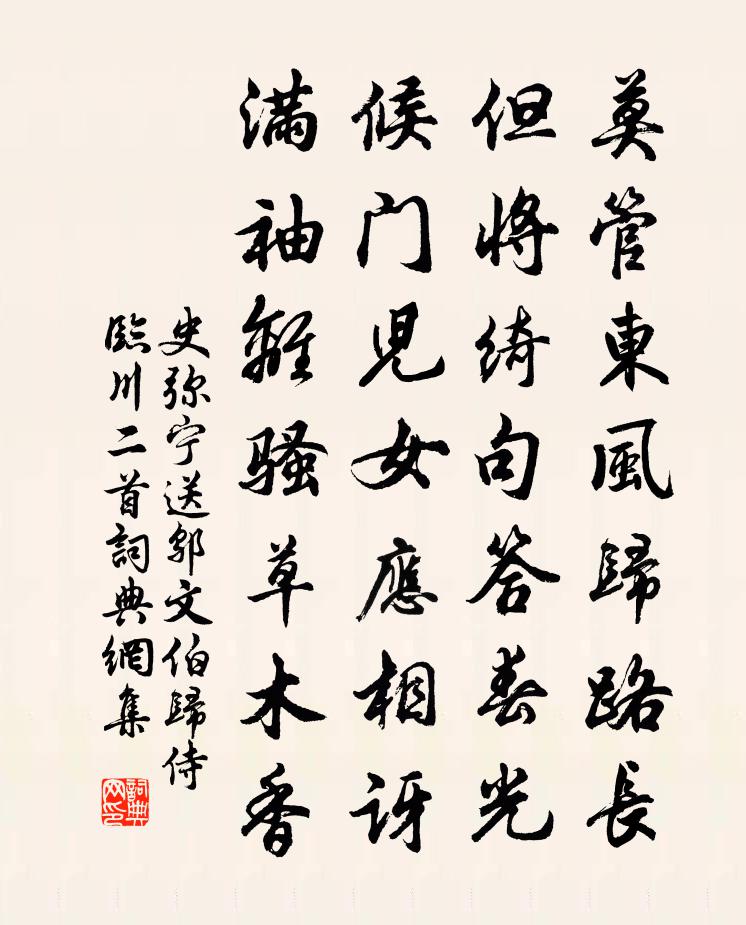 莫管東風歸路長
但將綺句答春光
候門兒女應相訝
滿袖離騷草木香
史弥宁送鄔文伯歸侍
臨川二首詞典網集
詞典网印